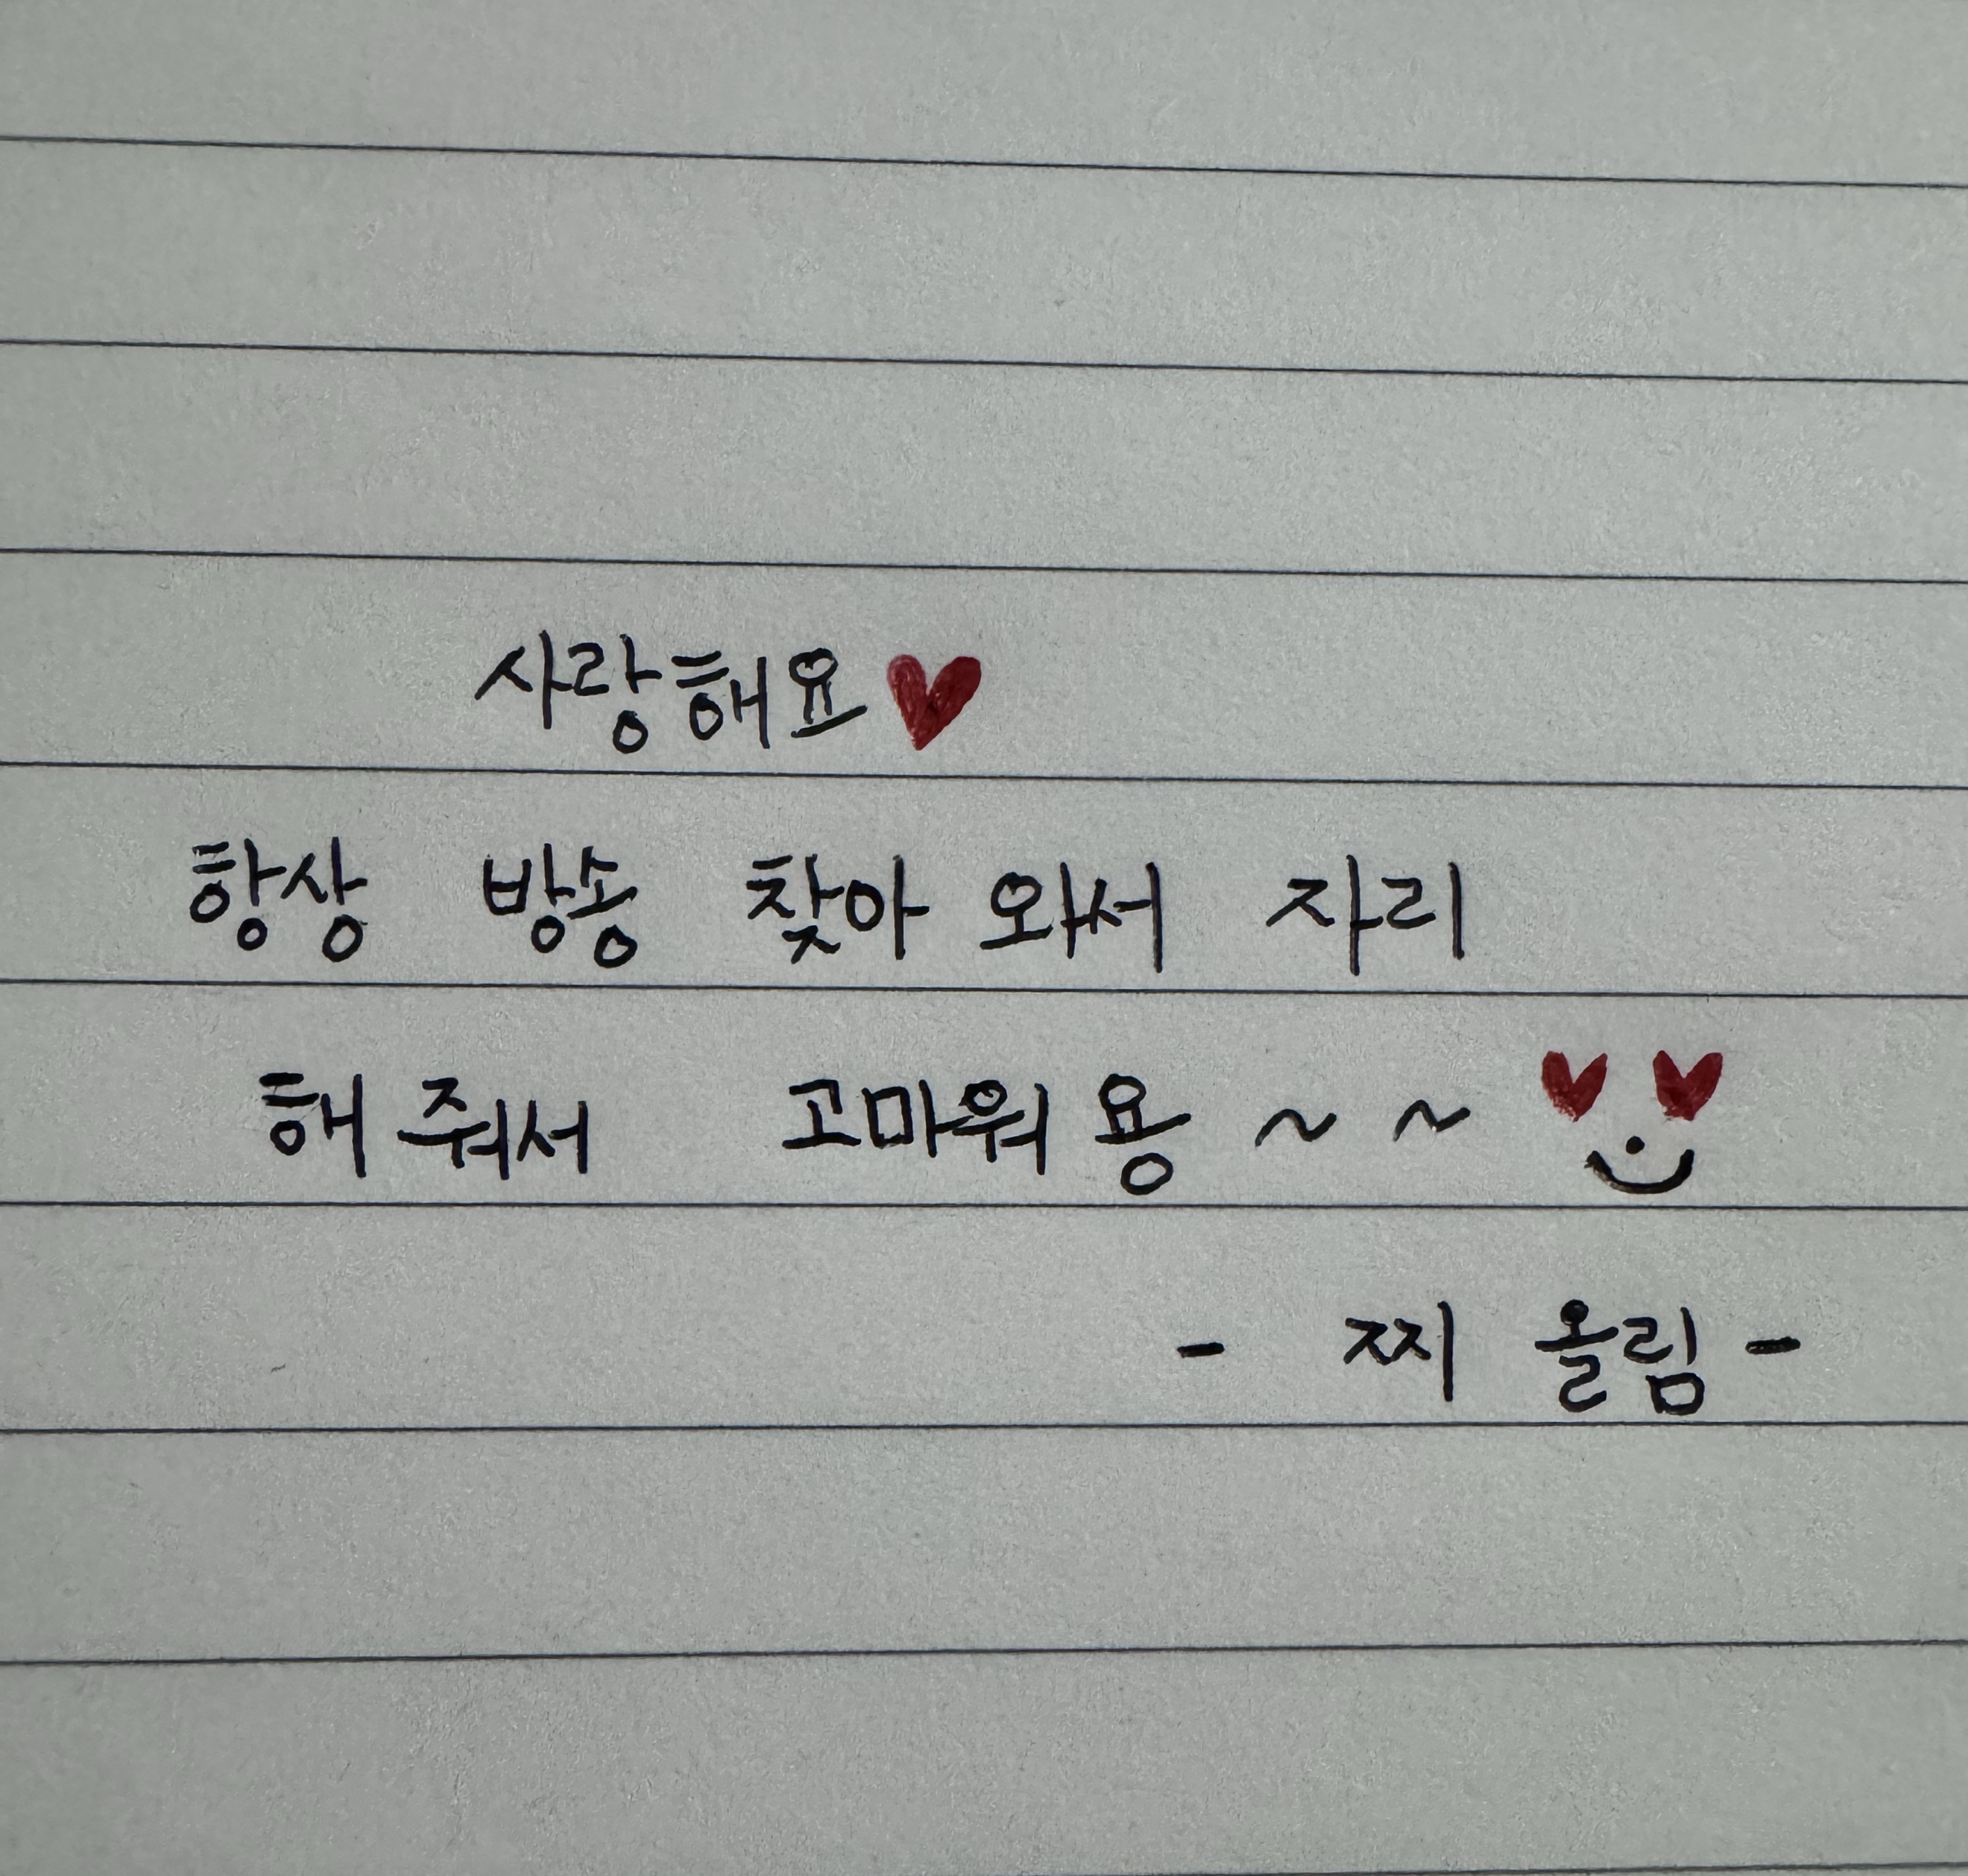 사랑해요♥
항상 방송 찾아 와서 자리
해 줘서 고마워용 ~ ~
- 찌 올림 -